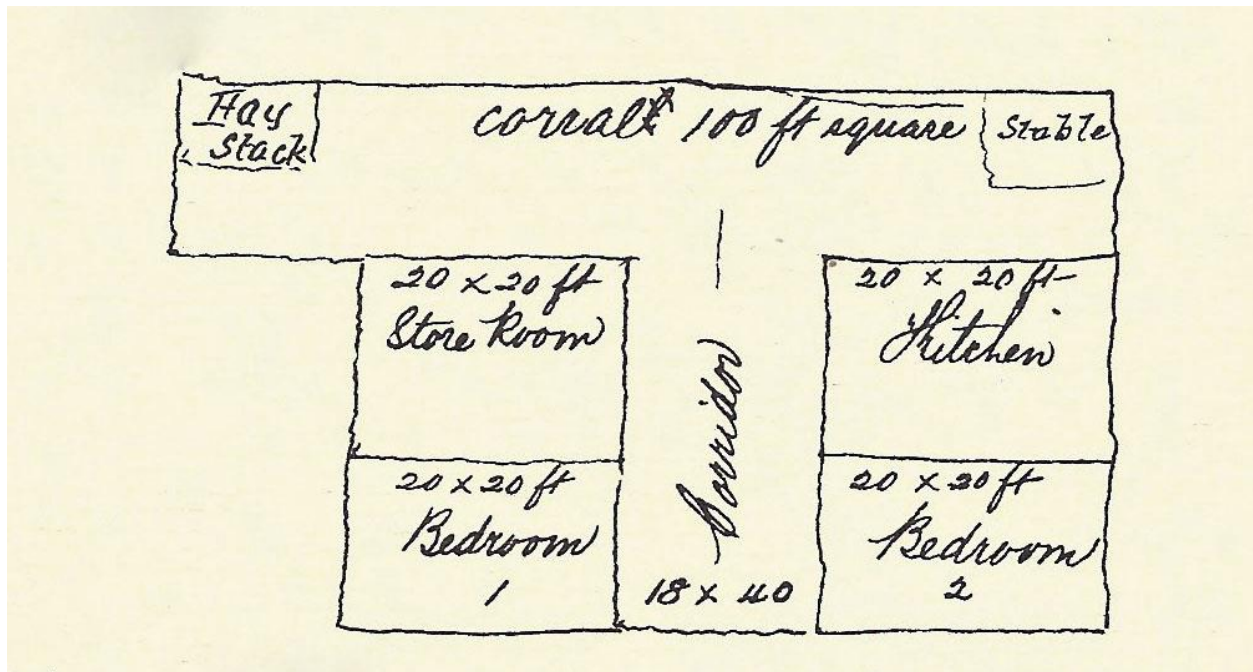 Hay
Stack
corrall 100 ft square
Stable
20 x 20 ft
Store Room
20 x 20 ft
Kitchen
Corridor
18 x 40
20 x 20 ft
Bedroom
1
20 x 20 ft
Bedroom
2